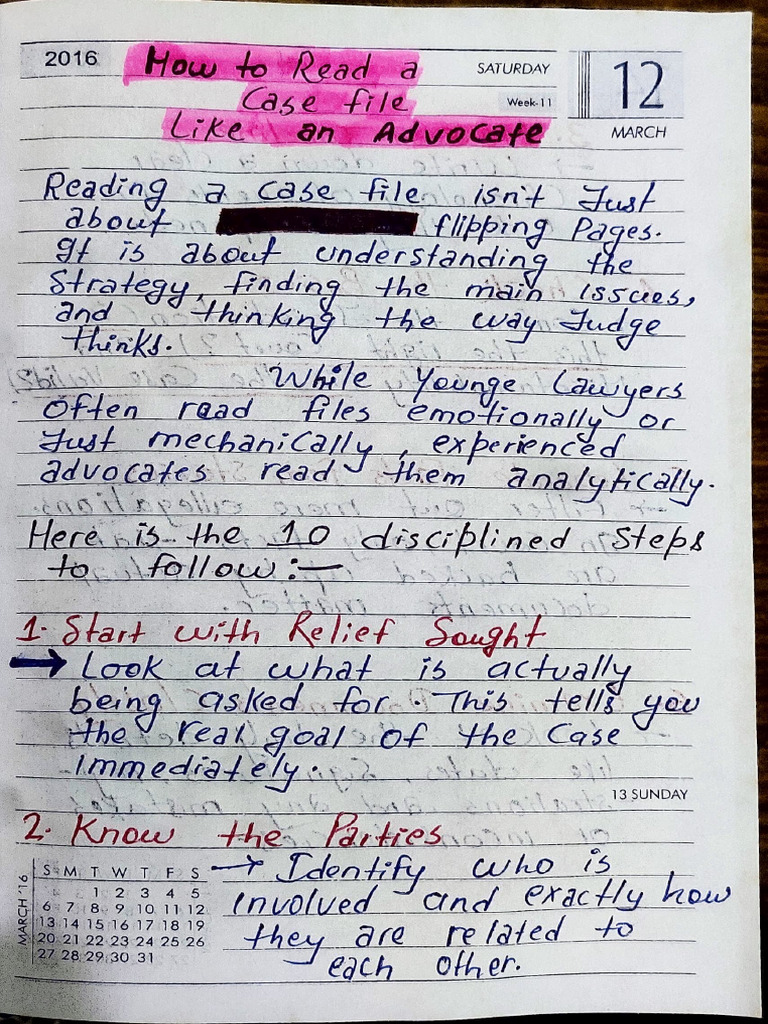 2016
How to Read a
SATURDAY
12
Case file
Week-11
Like an Advocate
MARCH
Reading a case file isn't Just
about flipping Pages.
It is about understanding the
Strategy, finding the main issues,
and thinking the way Judge
thinks.
While Younge Lawyers
Often read files emotionally or
Just mechanically, experienced
advocates read them analytically.
Here is the 10 disciplined Steps
to follow:—
1. Start with Relief Sought
→ Look at what is actually
being asked for. This tells you
the real goal of the Case
immediately.
13 SUNDAY
2. Know the Parties
→ Identify who is
involved and exactly how
they are related to
each other.
MARCH '16
S M T W T F S
1 2 3 4 5
6 7 8 9 10 11 12
13 14 15 16 17 18 19
20 21 22 23 24 25 26
27 28 29 30 31